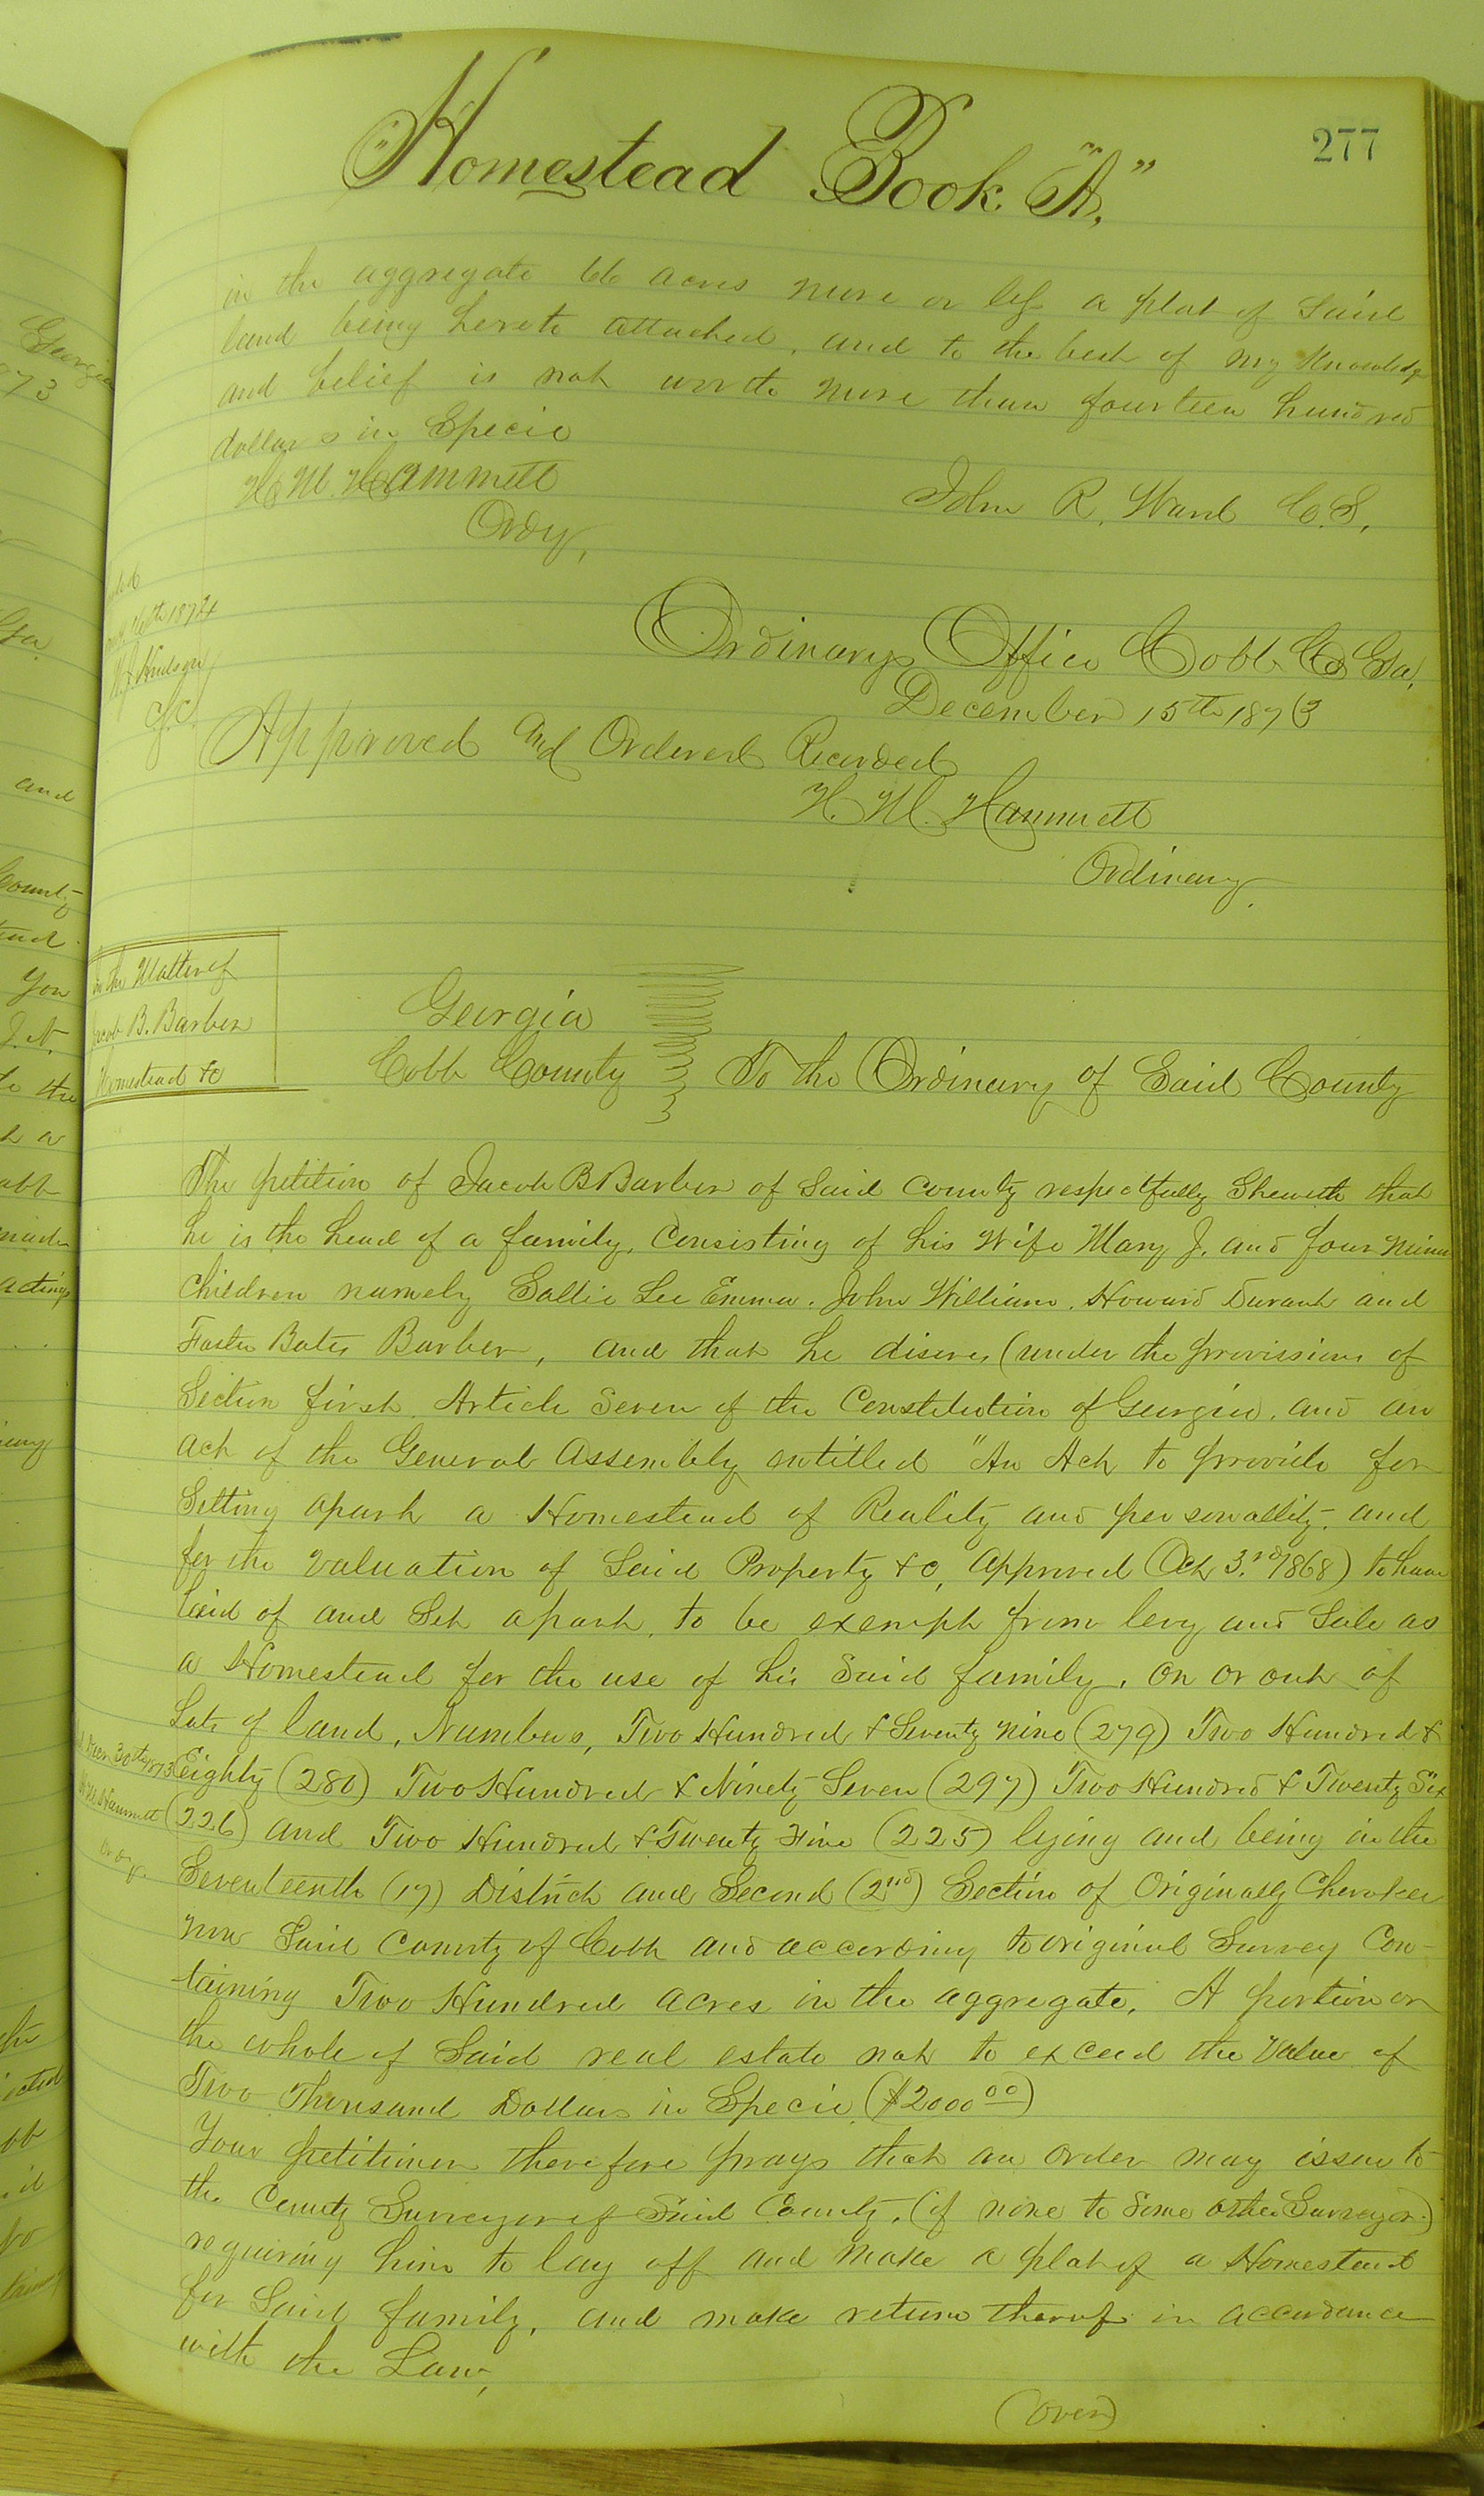 277
"Homestead Book "A,"
in the aggregate 66 acres more or less a plat of Said
land being hereto attached, and to the best of my Knowledge
and belief is not worth more than fourteen hundred
dollars in Specie
H. M. Hammett
Ordy,
John R. Ward C.S,
Ordinarys Office Cobb Co Ga,
December 15th 1873
Approved and Ordered Recorded
H. M. Hammett
Ordinary.
6th 1874
Hudson
C.S.C.
In the Matter of
Jacob B. Barber
Homestead &c
Georgia
Cobb County To the Ordinary of Said County
The petition of Jacob B Barber of Said County respectfully Sheweth that
he is the head of a family, Consisting of his Wife Mary J. and four minor
Children namely Sallie Lee Emma. John William. Howard Durant and
Foster Bates Barber, and that he disires (under the provissions of
Section first Article Seven of the Constitution of Georgia, and an
act of the General Assembly entitled "An Act to provide for
Setting apart a Homestead of Reality and personallity, and
for the Valuation of Said Property &c, approved Oct 3.rd 1868) to have
laid of and Set apart, to be exempt from levy and Sale as
a Homestead for the use of his Said family, on or out of
Lots of land, Numbers, Two Hundred & Seventy nine (279) Two Hundred &
Eighty (280) Two Hundred & Ninety Seven (297) Two Hundred & Twenty Six
(226) and Two Hundred & Twenty Five (225) lying and being in the
Seventeenth (17) District and Second (2nd) Section of Originally Cherokee
now Said County of Cobb and according to original Survey Con-
taining Two Hundred acres in the aggregate, A portion or
the whole of Said real estate not to exceed the Value of
Two Thousand Dollars in Specie ($2000 00)
Your petitioner therefore prays that an order may issue to
the County Surveyor of Said County, (if none to Some other Surveyor)
requiring him to lay off and make a plat of a Homestead
for Said family, and make return therof in accordance
with the Law,
30th 1873
Hammett
Ordy.
(over)